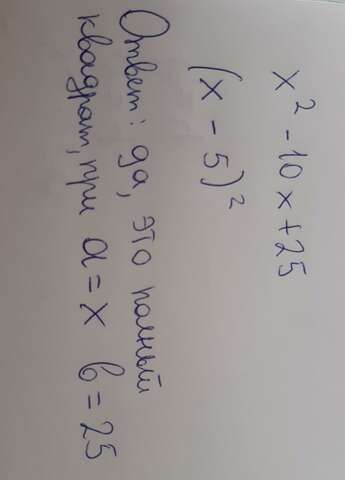 x² - 10x + 25
(x - 5)²
Ответ: да, это полный
квадрат, при a = x b = 25